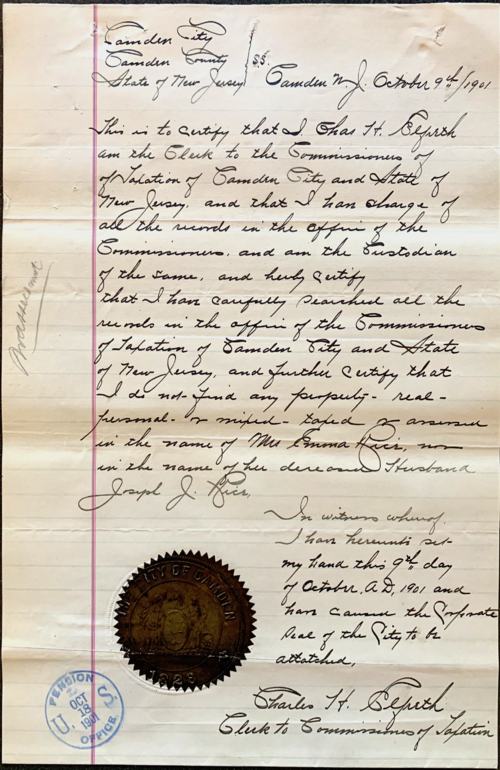 Camden City
Camden County } SS.
State of New Jersey Camden N. J. October 9th/1901
This is to certify that I Chas H. Elfreth
am the Clerk to the Commissioners of
of Taxation of Camden City and State of
New Jersey, and that I have charge of
all the records in the office of the
Commissioners, and am the Custodian
of the same, and herby certify
that I have carefully searched all the
records in the office of the Commissioners
of Taxation of Camden City and State
of New Jersey, and further certify that
I do not find any property - real -
personal - or mixed - taxed or assessed
in the name of Mrs Emma Rice, nor
in the name of her deceased Husband
Joseph J. Rice,
In witness whereof,
I have hereunto set
my hand this 9th day
of October, A.D, 1901 and
have caused the Corporate
Seal of the City to be
attatched,
Charles H. Elfreth
Clerk to Commissioners of Taxation
CITY OF CAMDEN
1828
U.S. PENSION OFFICE
OCT
18
1901